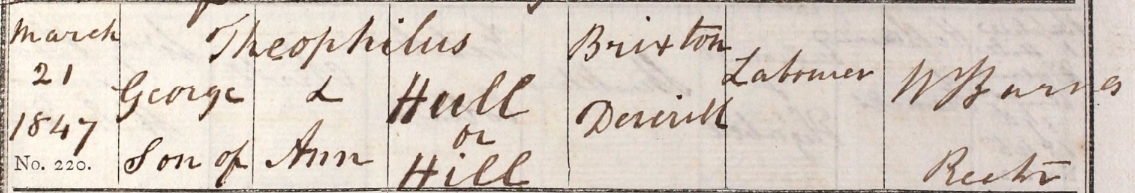 March Theophilus Brixton
21 George & Hull Labourer W Barnes
1847 or Deverill
No. 220. Son of Ann Hill Rector